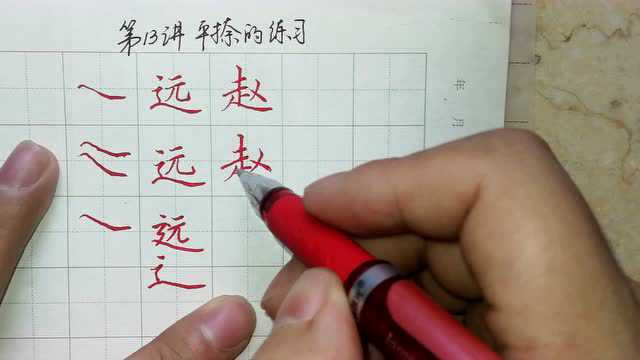 第13讲 平捺的练习
远 赵
远 赵
远
辶
年 月